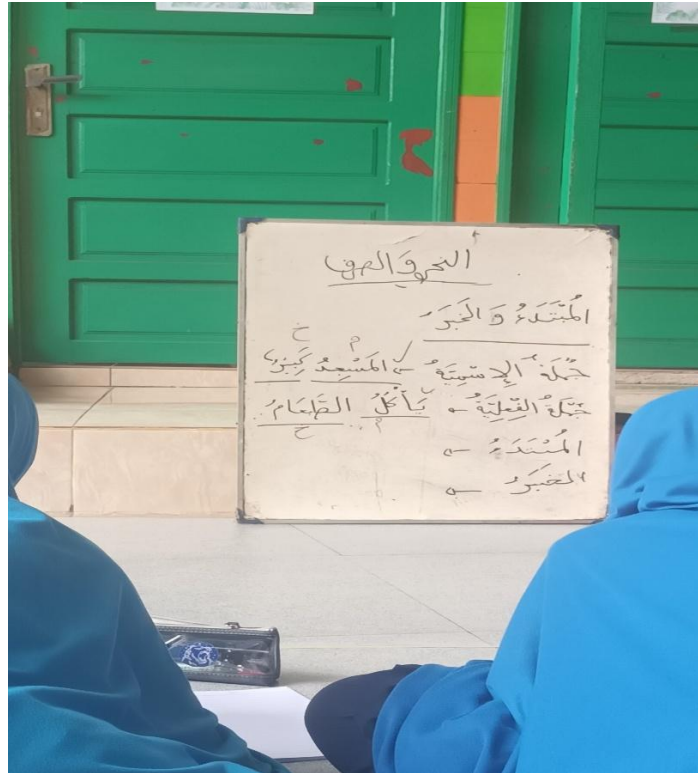 النحو والصرف
المُبْتَدَءُ وَ الخَبَرُ
م خ
جُمْلَةُ الإِسْمِيَّةُ ← المَسْجِدُ كَبِيْرٌ
جُمْلَةُ الفِعْلِيَةُ ← يَأْكُلُ الطَّعَامُ
م خ
المُبْتَدَءُ ←
الخَبَرُ ←